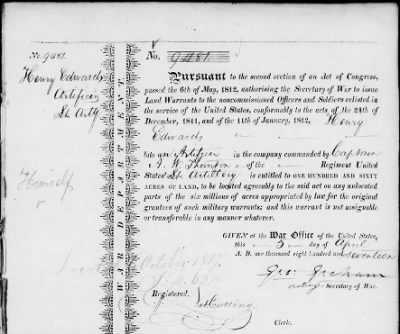 No. 9481.
Henry Edwards
Artificer
Lt. Arty
Himself
WAR DEPARTMENT.
No. 9481
Pursuant to the second section of an Act of Congress,
passed the 6th of May, 1812, authorising the Secretary of War to issue
Land Warrants to the noncommissioned Officers and Soldiers enlisted in
the service of the United States, conformably to the acts of the 24th of
December, 1811, and of the 11th of January, 1812, Henry
Edwards
late an Artificer in the company commanded by Captain
A. W. Thornton of the Regiment United
States' Lt. Artillery is entitled to ONE HUNDRED AND SIXTY
ACRES OF LAND, to be located agreeably to the said act on any unlocated
parts of the six millions of acres appropriated by law for the original
grantees of such military warrants; and this warrant is not assignable
or transferable in any manner whatever.
GIVEN at the War Office of the United States,
this 3 day of April
A. D. one thousand eight hundred and seventeen
Geo: Graham
acting Secretary of War.
October 1817
Registered.
Clerk.